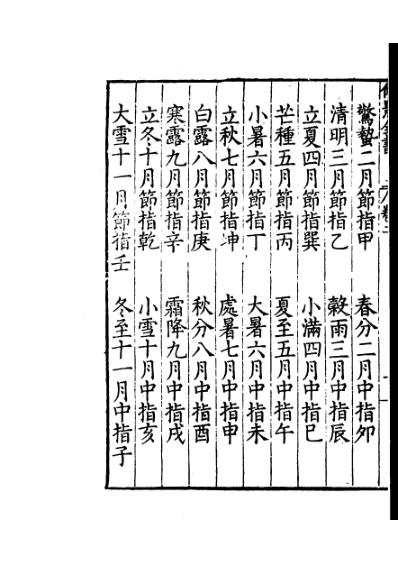 驚蟄二月節指甲　春分二月中指卯
清明三月節指乙　穀雨三月中指辰
立夏四月節指巽　小滿四月中指巳
芒種五月節指丙　夏至五月中指午
小暑六月節指丁　大暑六月中指未
立秋七月節指坤　處暑七月中指申
白露八月節指庚　秋分八月中指酉
寒露九月節指辛　霜降九月中指戌
立冬十月節指乾　小雪十月中指亥
大雪十一月節指壬　冬至十一月中指子